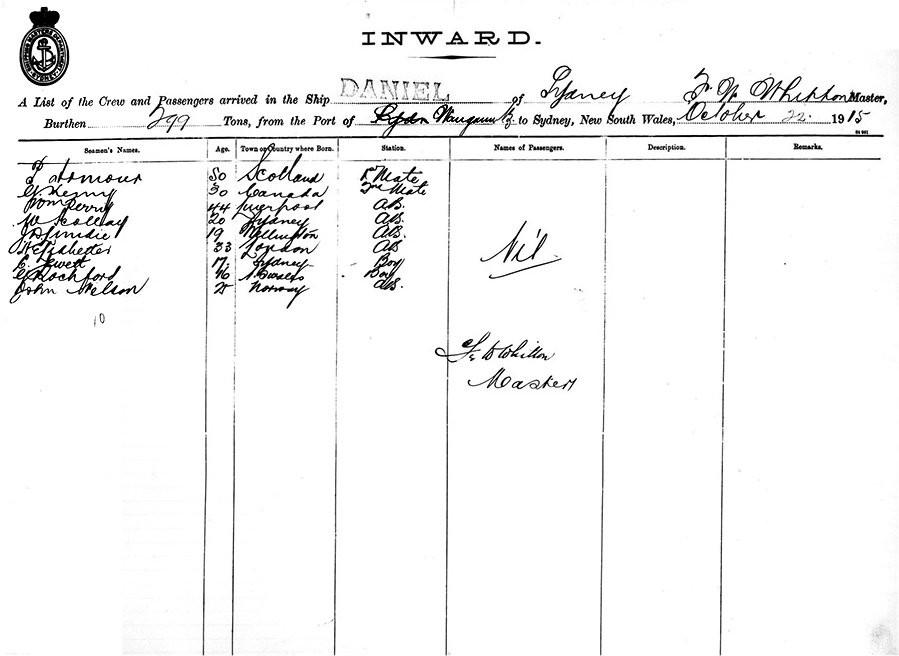 SHIPPING MASTER'S DEPARTMENT SYDNEY
INWARD.
A List of the Crew and Passengers arrived in the Ship DANIEL of Sydney F W Whitton Master,
Burthen 299 Tons, from the Port of to Sydney, New South Wales, October 22. 1915
Seamen's Names. Age. Town or Country where Born. Station. Names of Passengers. Description. Remarks.
Armour 50 Scotland 1st Mate
G. Kenny 30 Canada 2nd Mate
Tom Perry 44 Liverpool AB.
W 20 Sydney AB.
19 Wellington AB.
33 London AB
17. Sydney Boy
G Rochford 16 N. S Wales Boy
John Nelson 25 Norway AB.
Nil
10
F. W Whitton
Master